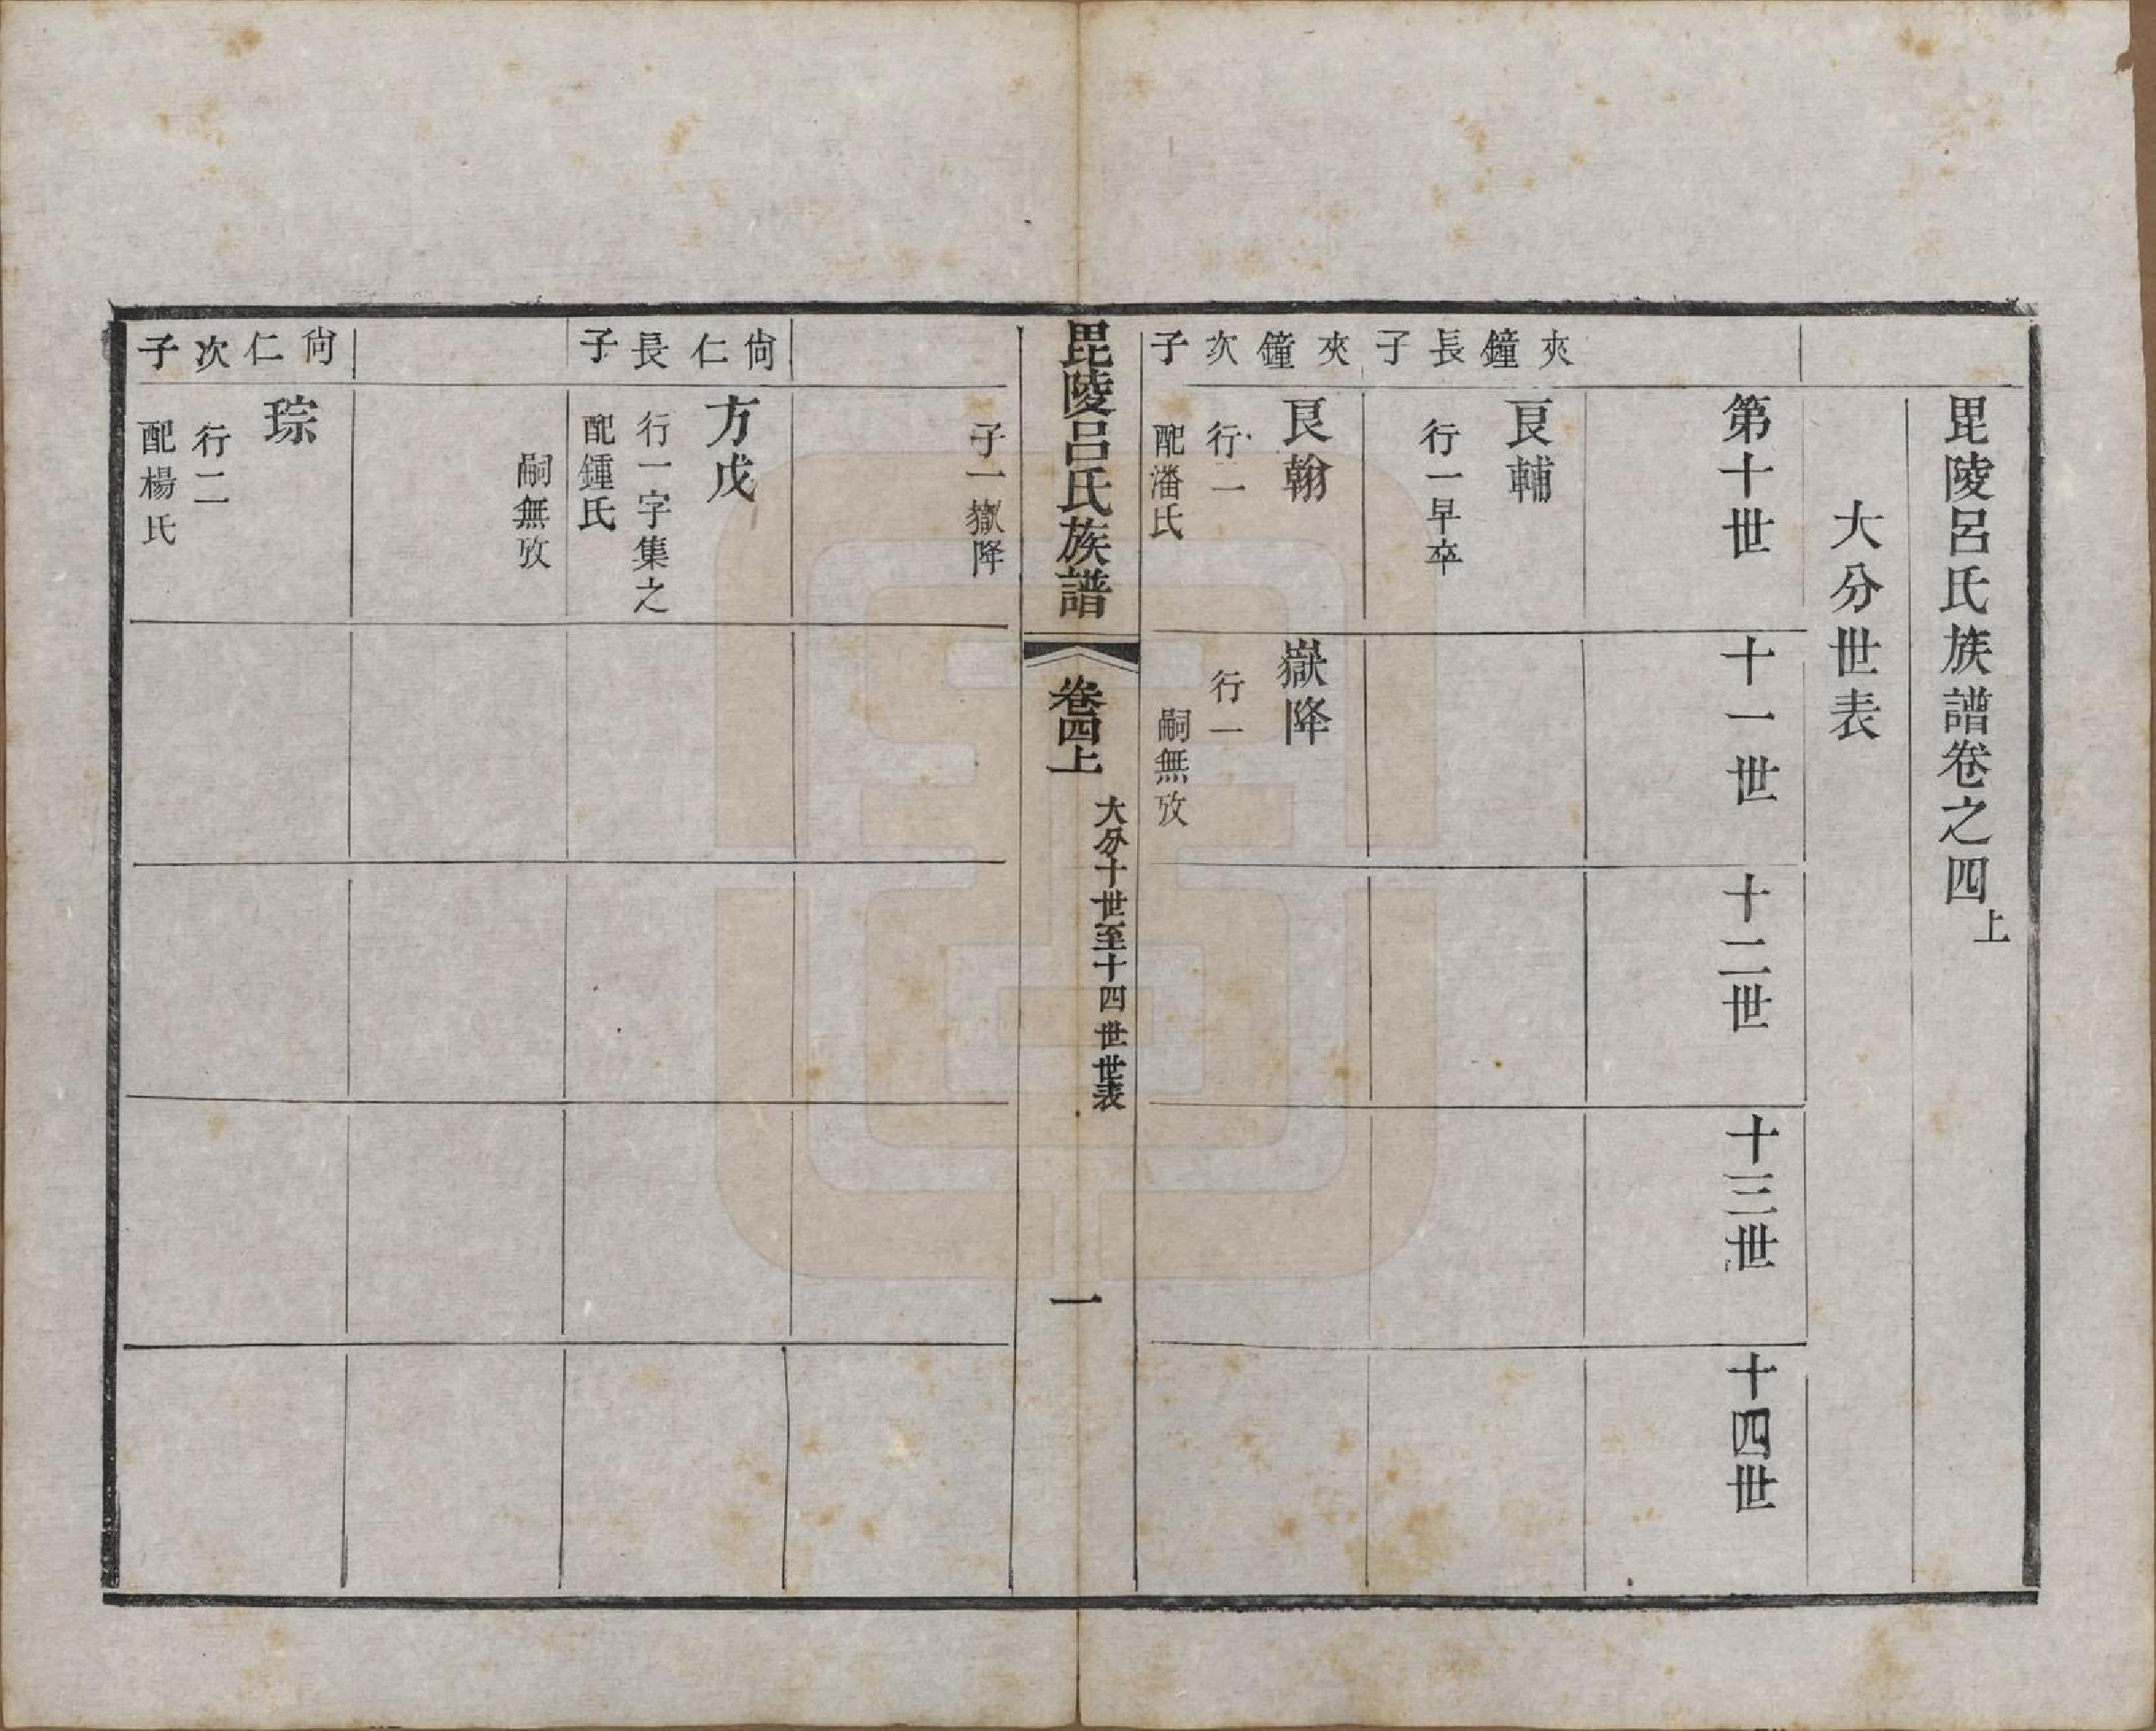 毘陵呂氏族譜卷之四上
大分世表
第十世
十一世
十二世
十三世
十四世
夾鐘長子
良輔
行一早卒
夾鐘次子
良翰
行二
配潘氏
嶽降
行一
嗣無攷
毘陵呂氏族譜
卷四上
大分十世至十四世世表
一
子一嶽降
尙仁長子
方戊
行一字集之
配鍾氏
嗣無攷
尙仁次子
琮
行二
配楊氏